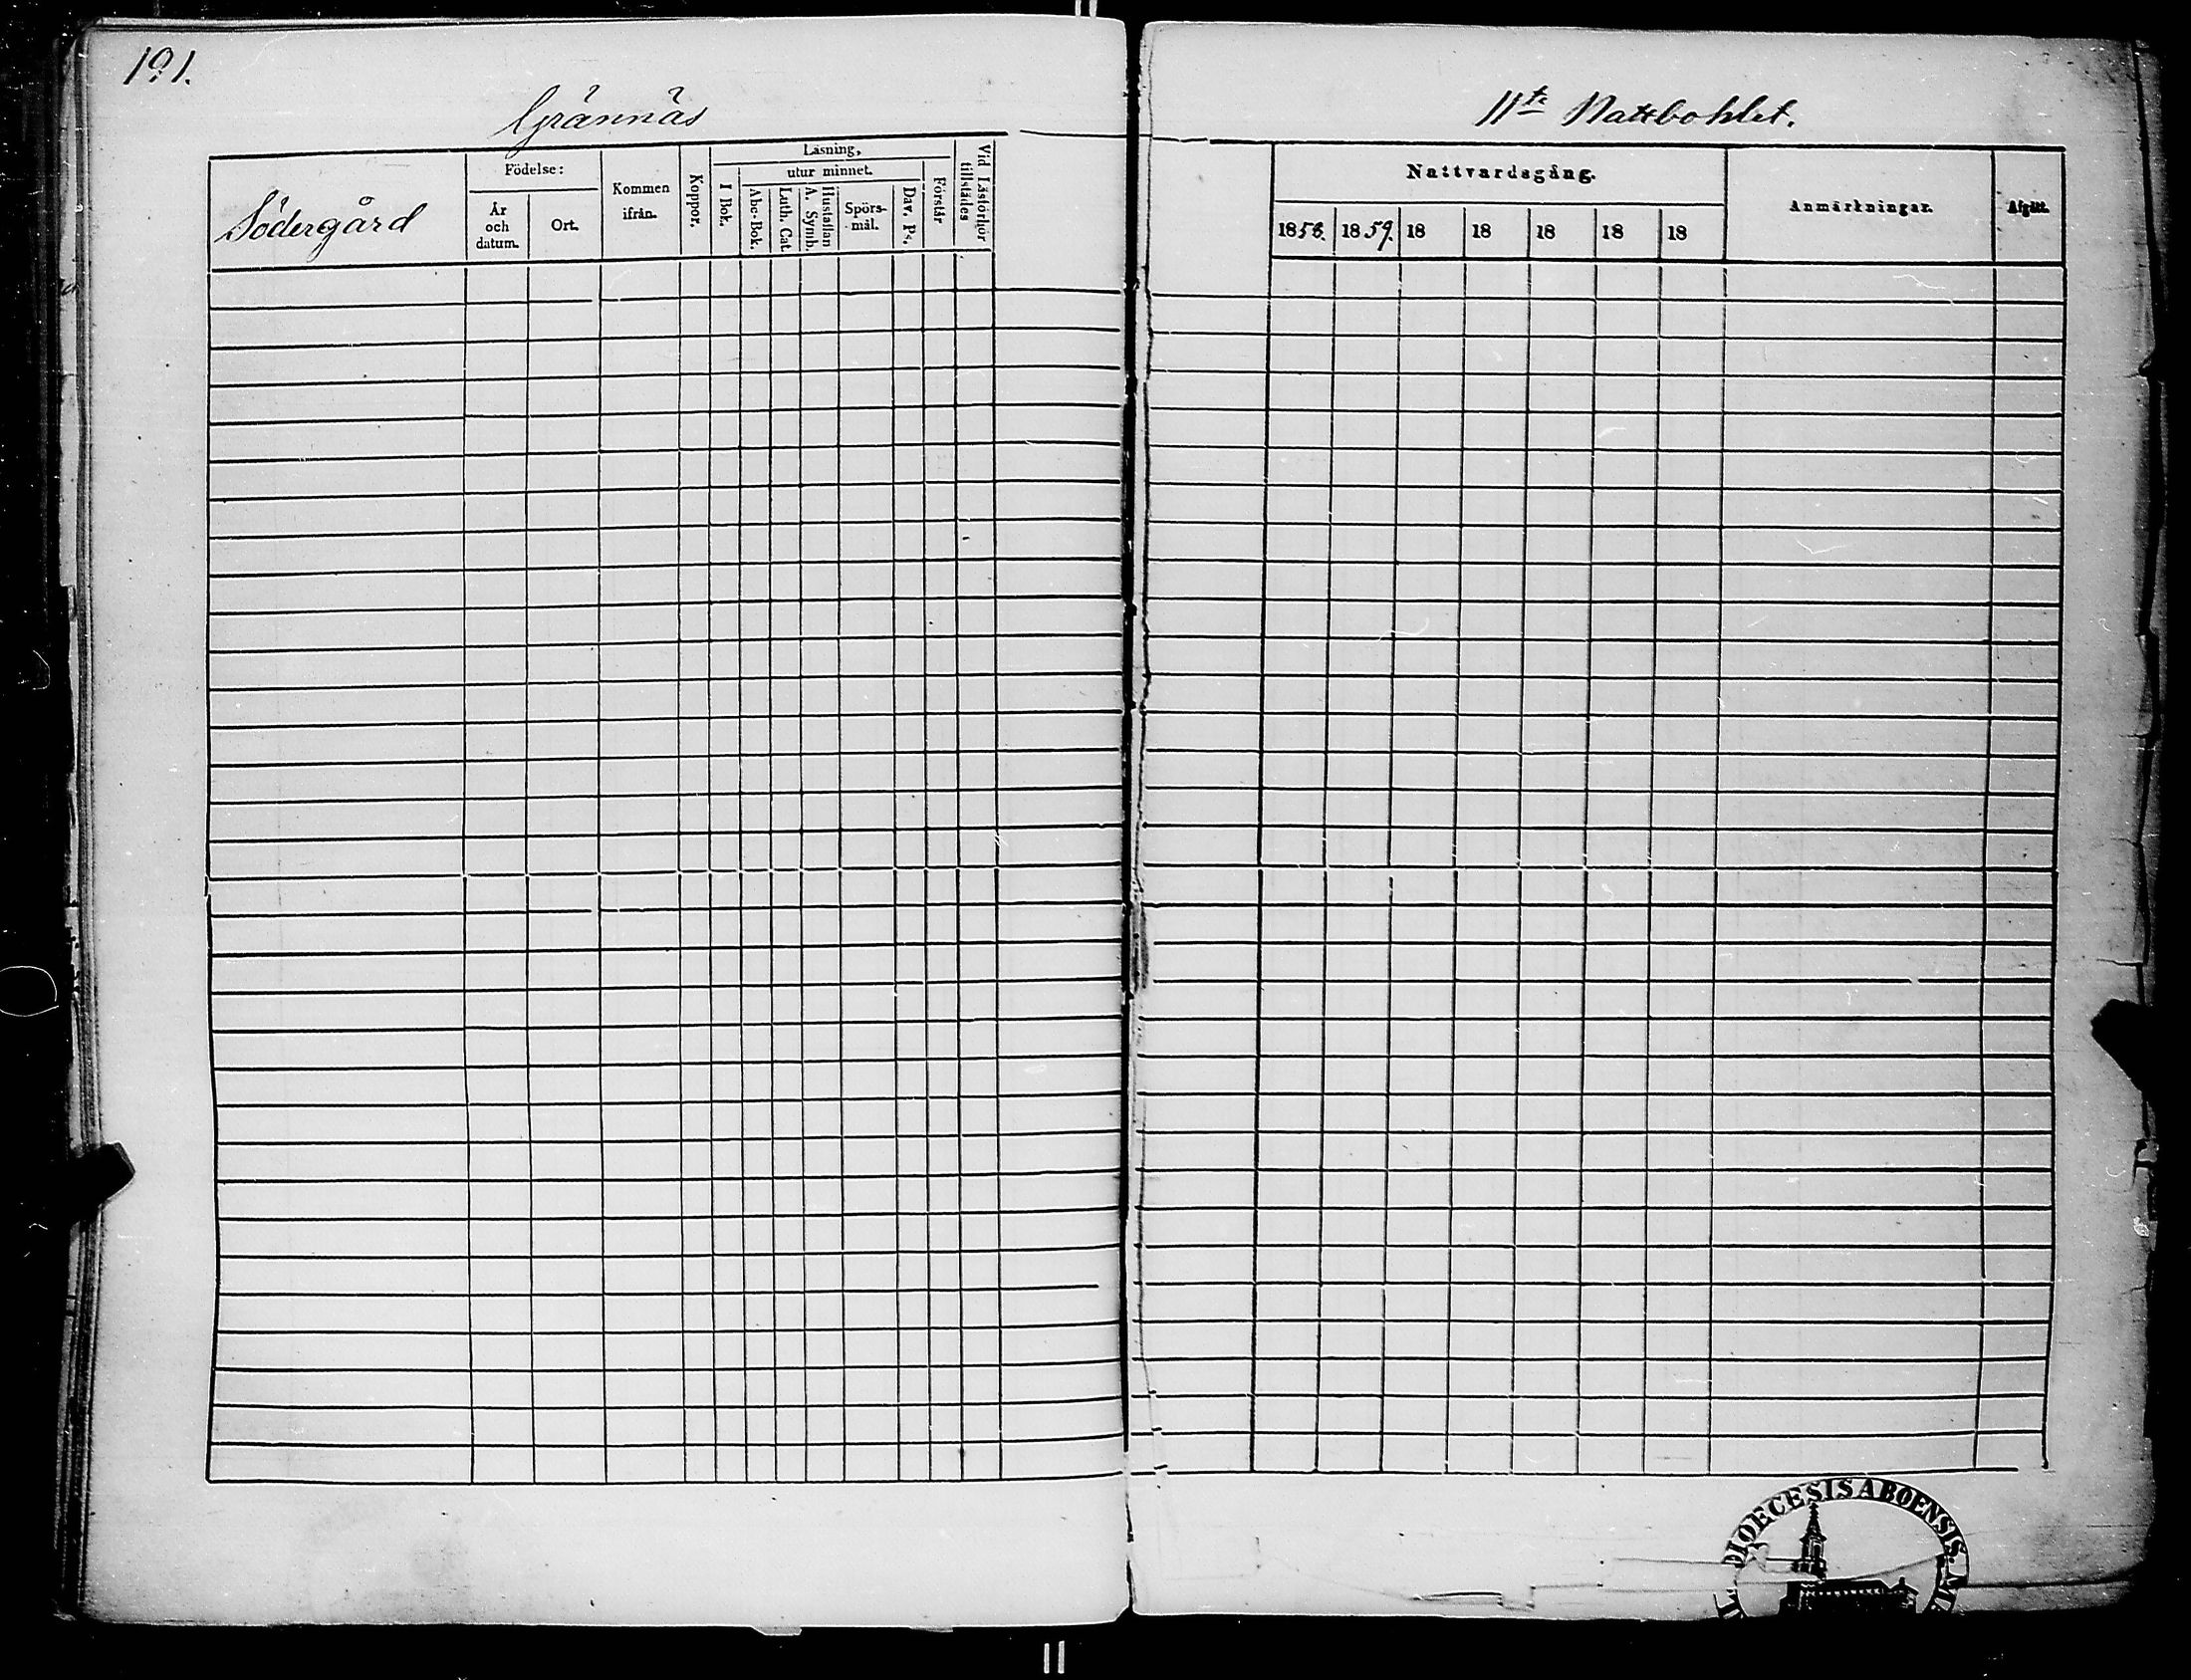 191.
Grännäs
Södergård
Födelse:
År
och
datum.
Ort.
Kommen
ifrån.
Koppor.
Läsning,
utur minnet.
I Bok.
Abc-Bok.
Luth. Cat.
Hustaflan
A. Symb.
Spörs-
mål.
Dav. Ps.
Förstår
Vid Läsförhör
tillstädes
11te Nattbohlet.
Nattvardsgång.
1858. 1859. 18 18 18 18 18
Anmärkningar.
Afgått.
DIOECESIS ABOENSIS. M